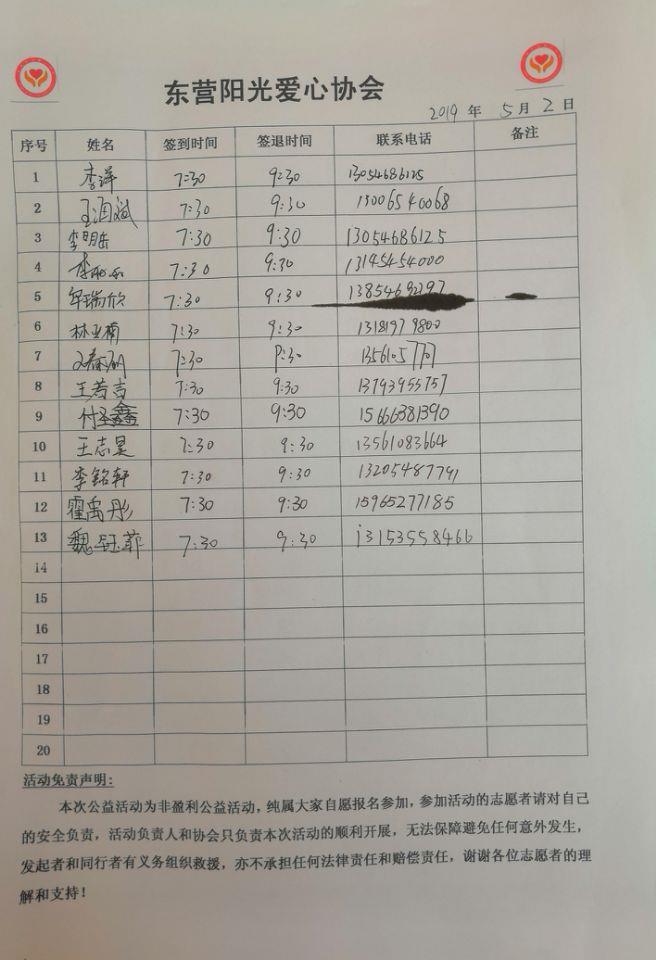 东营阳光爱心协会
2019 年 5 月 2 日
序号 姓名 签到时间 签退时间 联系电话 备注
1 李萍 7:30 9:30 13054686125
2 7:30 9:30 15006540068
3 李明岳 7:30 9:30 13054686125
4 7:30 9:30 13145454000
5 牟瑞欣 7:30 9:30 13854692297
6 林亚楠 7:30 9:30 13181979800
7 7:30 9:30
8 王若吉 7:30 9:30 13793955757
9 付圣鑫 7:30 9:30 15666381390
10 王志昊 7:30 9:30 13561083664
11 李铭轩 7:30 9:30 13205487791
12 霍禹彤 7:30 9:30 15965277185
13 魏钰菲 7:30 9:30 13153558466
14
15
16
17
18
19
20
活动免责声明:
本次公益活动为非盈利公益活动，纯属大家自愿报名参加，参加活动的志愿者请对自己
的安全负责，活动负责人和协会只负责本次活动的顺利开展，无法保障避免任何意外发生，
发起者和同行者有义务组织救援，亦不承担任何法律责任和赔偿责任，谢谢各位志愿者的理
解和支持！